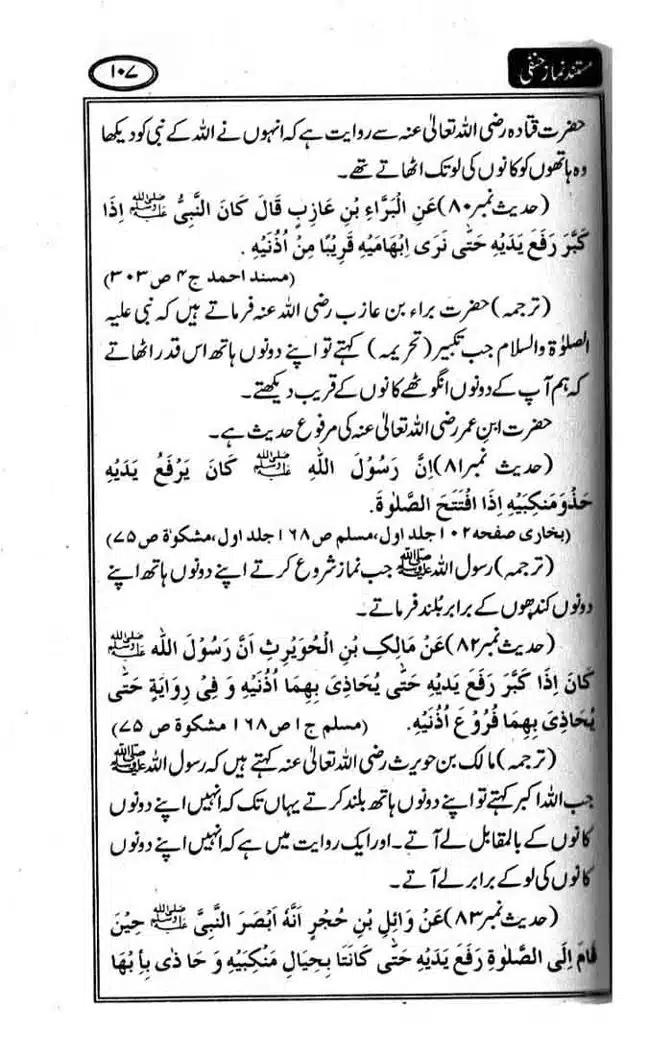 مستند نماز حنفی
۱۰۷
حضرت قتادہ رضی اللہ تعالیٰ عنہ سے روایت ہے کہ انہوں نے اللہ کے نبی کو دیکھا
وہ ہاتھوں کو کانوں کی لو تک اٹھاتے تھے۔
(حدیث نمبر ۸۰) عَنِ الْبَرَّاءِ بْنِ عَازِبٍ قَالَ كَانَ النَّبِیُّ ﷺ اِذَا
كَبَّرَ رَفَعَ يَدَيْهِ حَتّٰى نَرٰى اِبْهَامَيْهِ قَرِيْبًا مِنْ اُذُنَيْهِ .
(مسند احمد ج ۴ ص ۳۰۳)
(ترجمہ) حضرت براء بن عازب رضی اللہ عنہ فرماتے ہیں کہ نبی علیہ
الصلوٰۃ والسلام جب تکبیر (تحریمہ) کہتے تو اپنے دونوں ہاتھ اس قدر اٹھاتے
کہ ہم آپ کے دونوں انگوٹھے کانوں کے قریب دیکھتے۔
حضرت ابنِ عمر رضی اللہ تعالیٰ عنہ کی مرفوع حدیث ہے۔
(حدیث نمبر ۸۱) اِنَّ رَسُوْلَ اللهِ ﷺ كَانَ يَرْفَعُ يَدَيْهِ
حَذْوَ مَنْكِبَيْهِ اِذَا افْتَتَحَ الصَّلٰوةَ.
(بخاری صفحہ ۱۰۲ جلد اول، مسلم ص ۱۶۸ جلد اول، مشکوٰۃ ص ۷۵)
(ترجمہ) رسول اللہ ﷺ جب نماز شروع کرتے اپنے دونوں ہاتھ اپنے
دونوں کندھوں کے برابر بُلند فرماتے۔
(حدیث نمبر ۸۲) عَنْ مَالِكِ بْنِ الْحُوَيْرِثِ اَنَّ رَسُوْلَ الله ﷺ
كَانَ اِذَا كَبَّرَ رَفَعَ يَدَيْهِ حَتّٰى يُحَاذِىَ بِهِمَا اُذُنَيْهِ وَ فِىْ رِوَايَةٍ حَتّٰى
يُحَاذِىَ بِهِمَا فُرُوْعَ اُذُنَيْهِ. (مسلم ج ۱ ص ۱۶۸ مشکوۃ ص ۷۵)
(ترجمہ) مالک بن حویرث رضی اللہ تعالیٰ عنہ کہتے ہیں کہ رسول اللہ ﷺ
جب اللہ اکبر کہتے تو اپنے دونوں ہاتھ بلند کرتے یہاں تک کہ انہیں اپنے دونوں
کانوں کے بالمقابل لے آتے۔ اور ایک روایت میں ہے کہ انہیں اپنے دونوں
کانوں کی لو کے برابر لے آتے۔
(حدیث نمبر ۸۳) عَنْ وَائِلِ بْنِ حُجْرٍ اَنَّهُ اَبْصَرَ النَّبِىَّ ﷺ حِيْنَ
قَامَ اِلَى الصَّلٰوةِ رَفَعَ يَدَيْهِ حَتّٰى كَانَتَا بِحِيَالِ مَنْكِبَيْهِ وَ حَاذٰى بِاِبْهَا